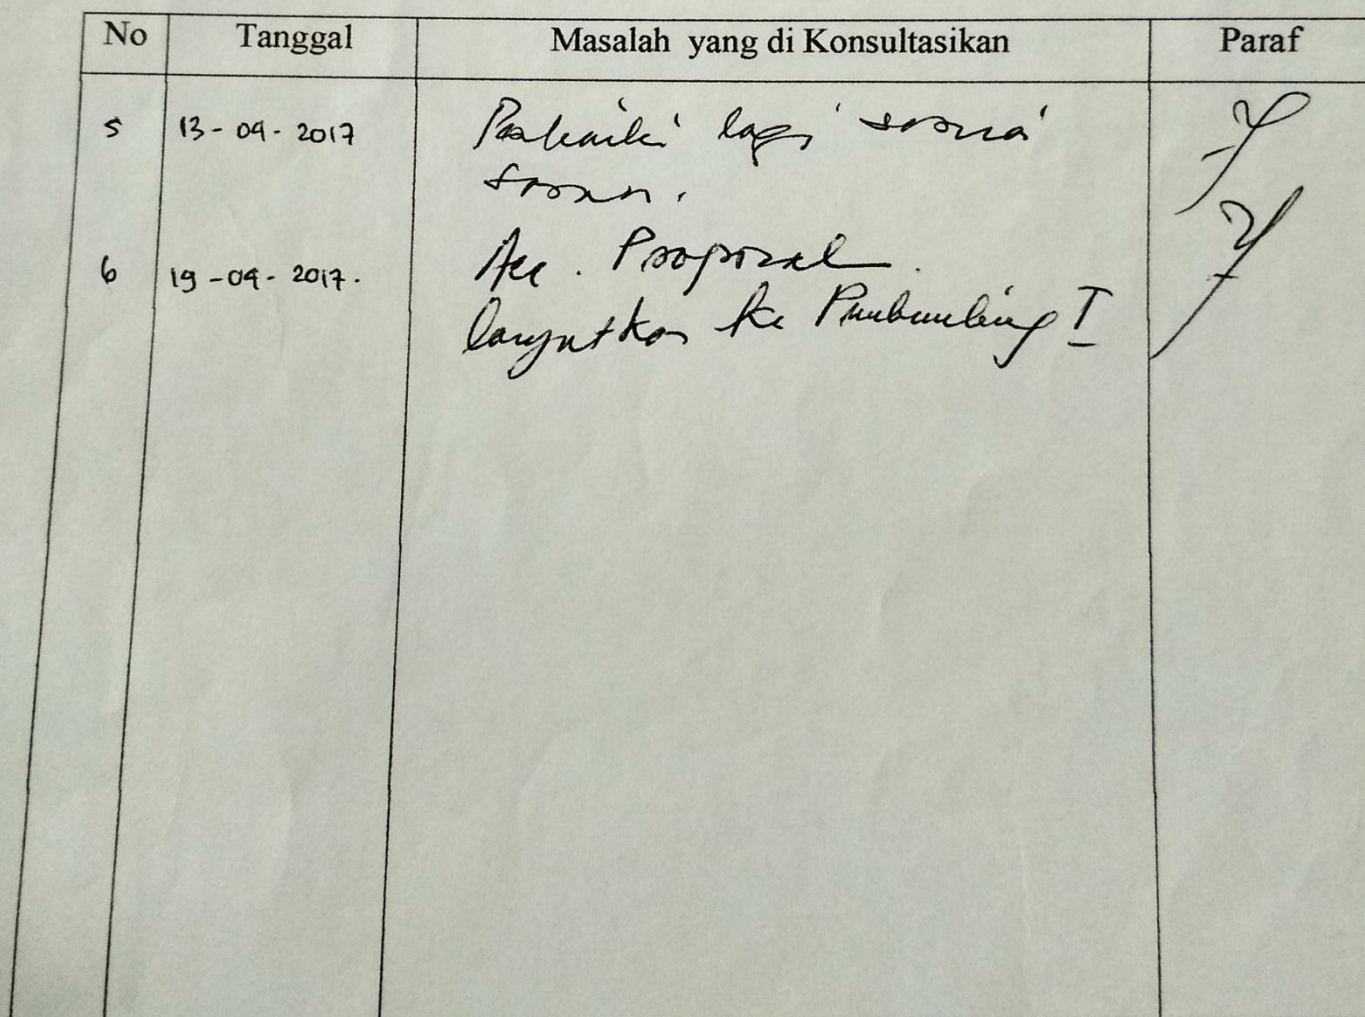 No Tanggal Masalah yang di Konsultasikan Paraf
5 13-04-2017 Perbaiki lagi sesuai
saran.
6 19-04-2017. Acc. Proposal.
lanjutkan ke Pembimbing I